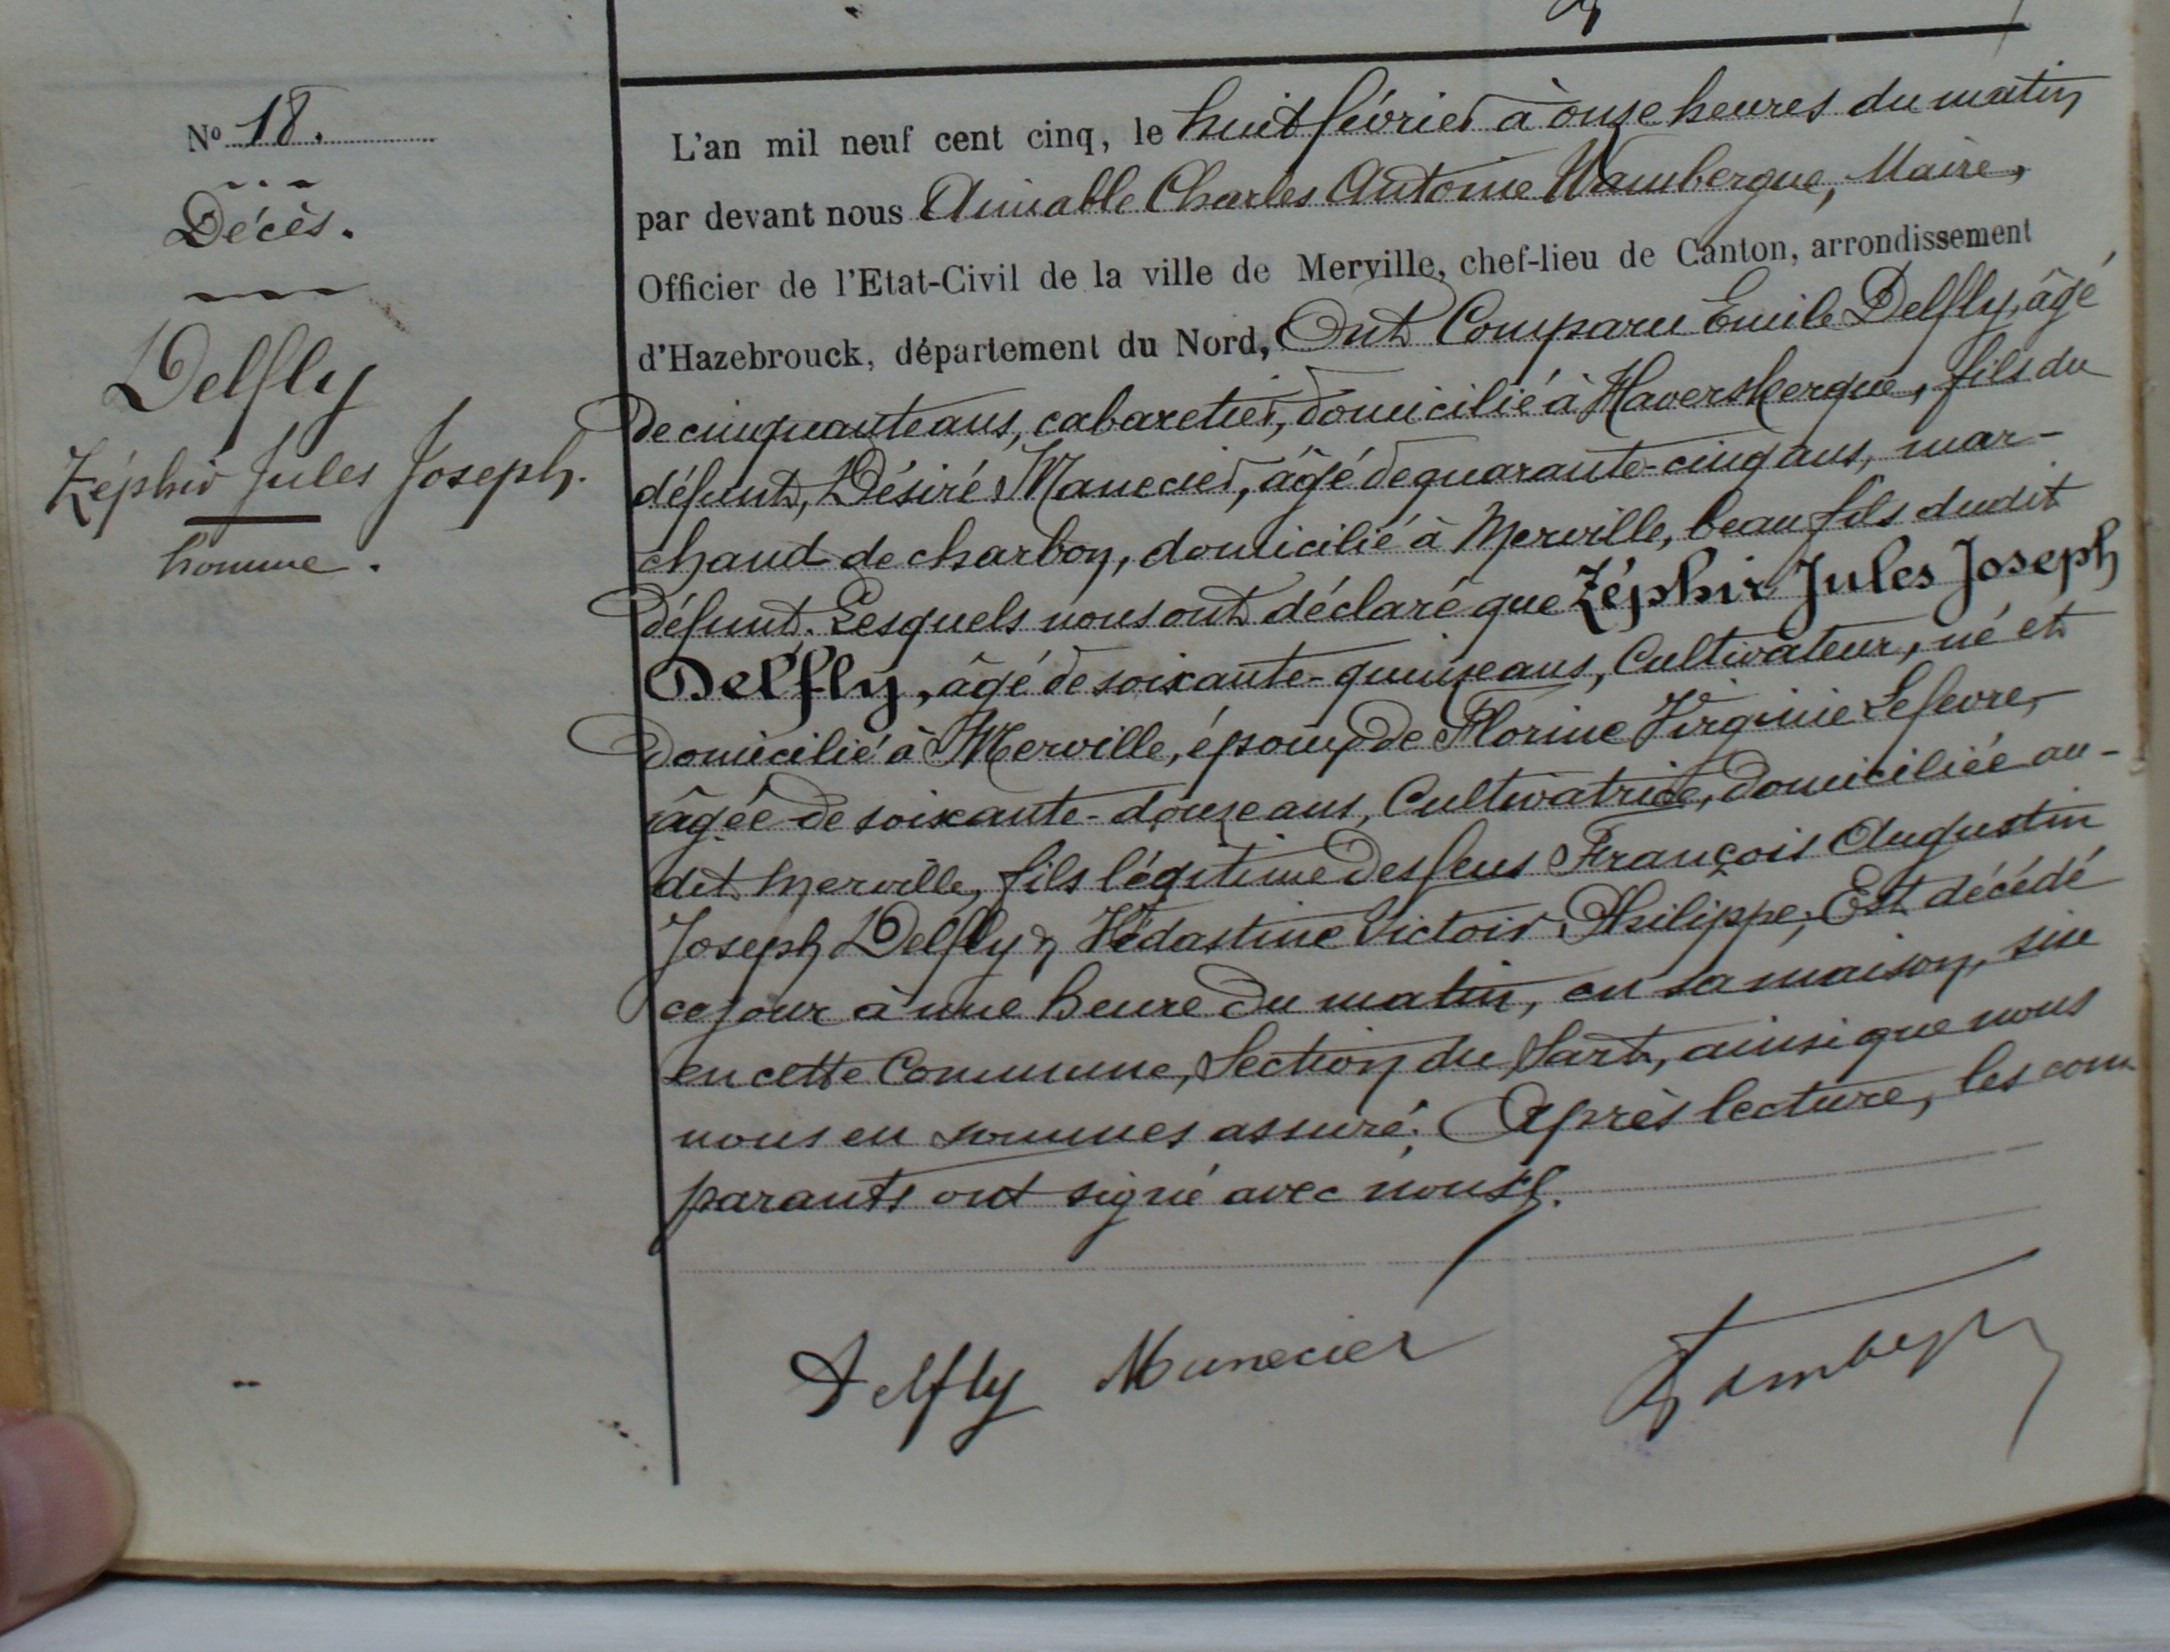 N° 18.
Décès.
Delfly
Zéphir Jules Joseph.
homme.
L'an mil neuf cent cinq, le huit février à onze heures du matin
par devant nous Aimable Charles Antoine Wambergue, Maire,
Officier de l'Etat-Civil de la ville de Merville, chef-lieu de Canton, arrondissement
d'Hazebrouck, département du Nord, Ont Comparu Emile Delfly, âgé
de cinquante ans, cabaretier, domicilié à Haverskerque, fils du
défunt, Désiré Manecier, âgé de quarante-cinq ans, mar-
chand de charbon, domicilié à Merville, beau fils dudit
défunt. Lesquels nous ont déclaré que Zéphir Jules Joseph
Delfly, âgé de soixante-quinze ans, Cultivateur, né et
domicilié à Merville, époux de Florine Virginie Lefevre,
âgée de soixante-douze ans, Cultivatrice, domiciliée au-
dit Merville, fils légitime des feus François Augustin
Joseph Delfly & Védastine Victoir Philippe; Est décédé
ce jour à une heure du matin, en sa maison, sise
en cette Commune, Section du Sart, ainsi que nous
nous en sommes assuré. Après lecture, les com-
parants ont signé avec nous.
Delfly Manecier